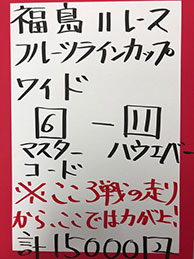 福島11レース
フルーツラインカップ
ワイド
6 ー 11
マスターコード ハウエバー
※ここ3戦の走り
から、ここでは力が上!
計15000円